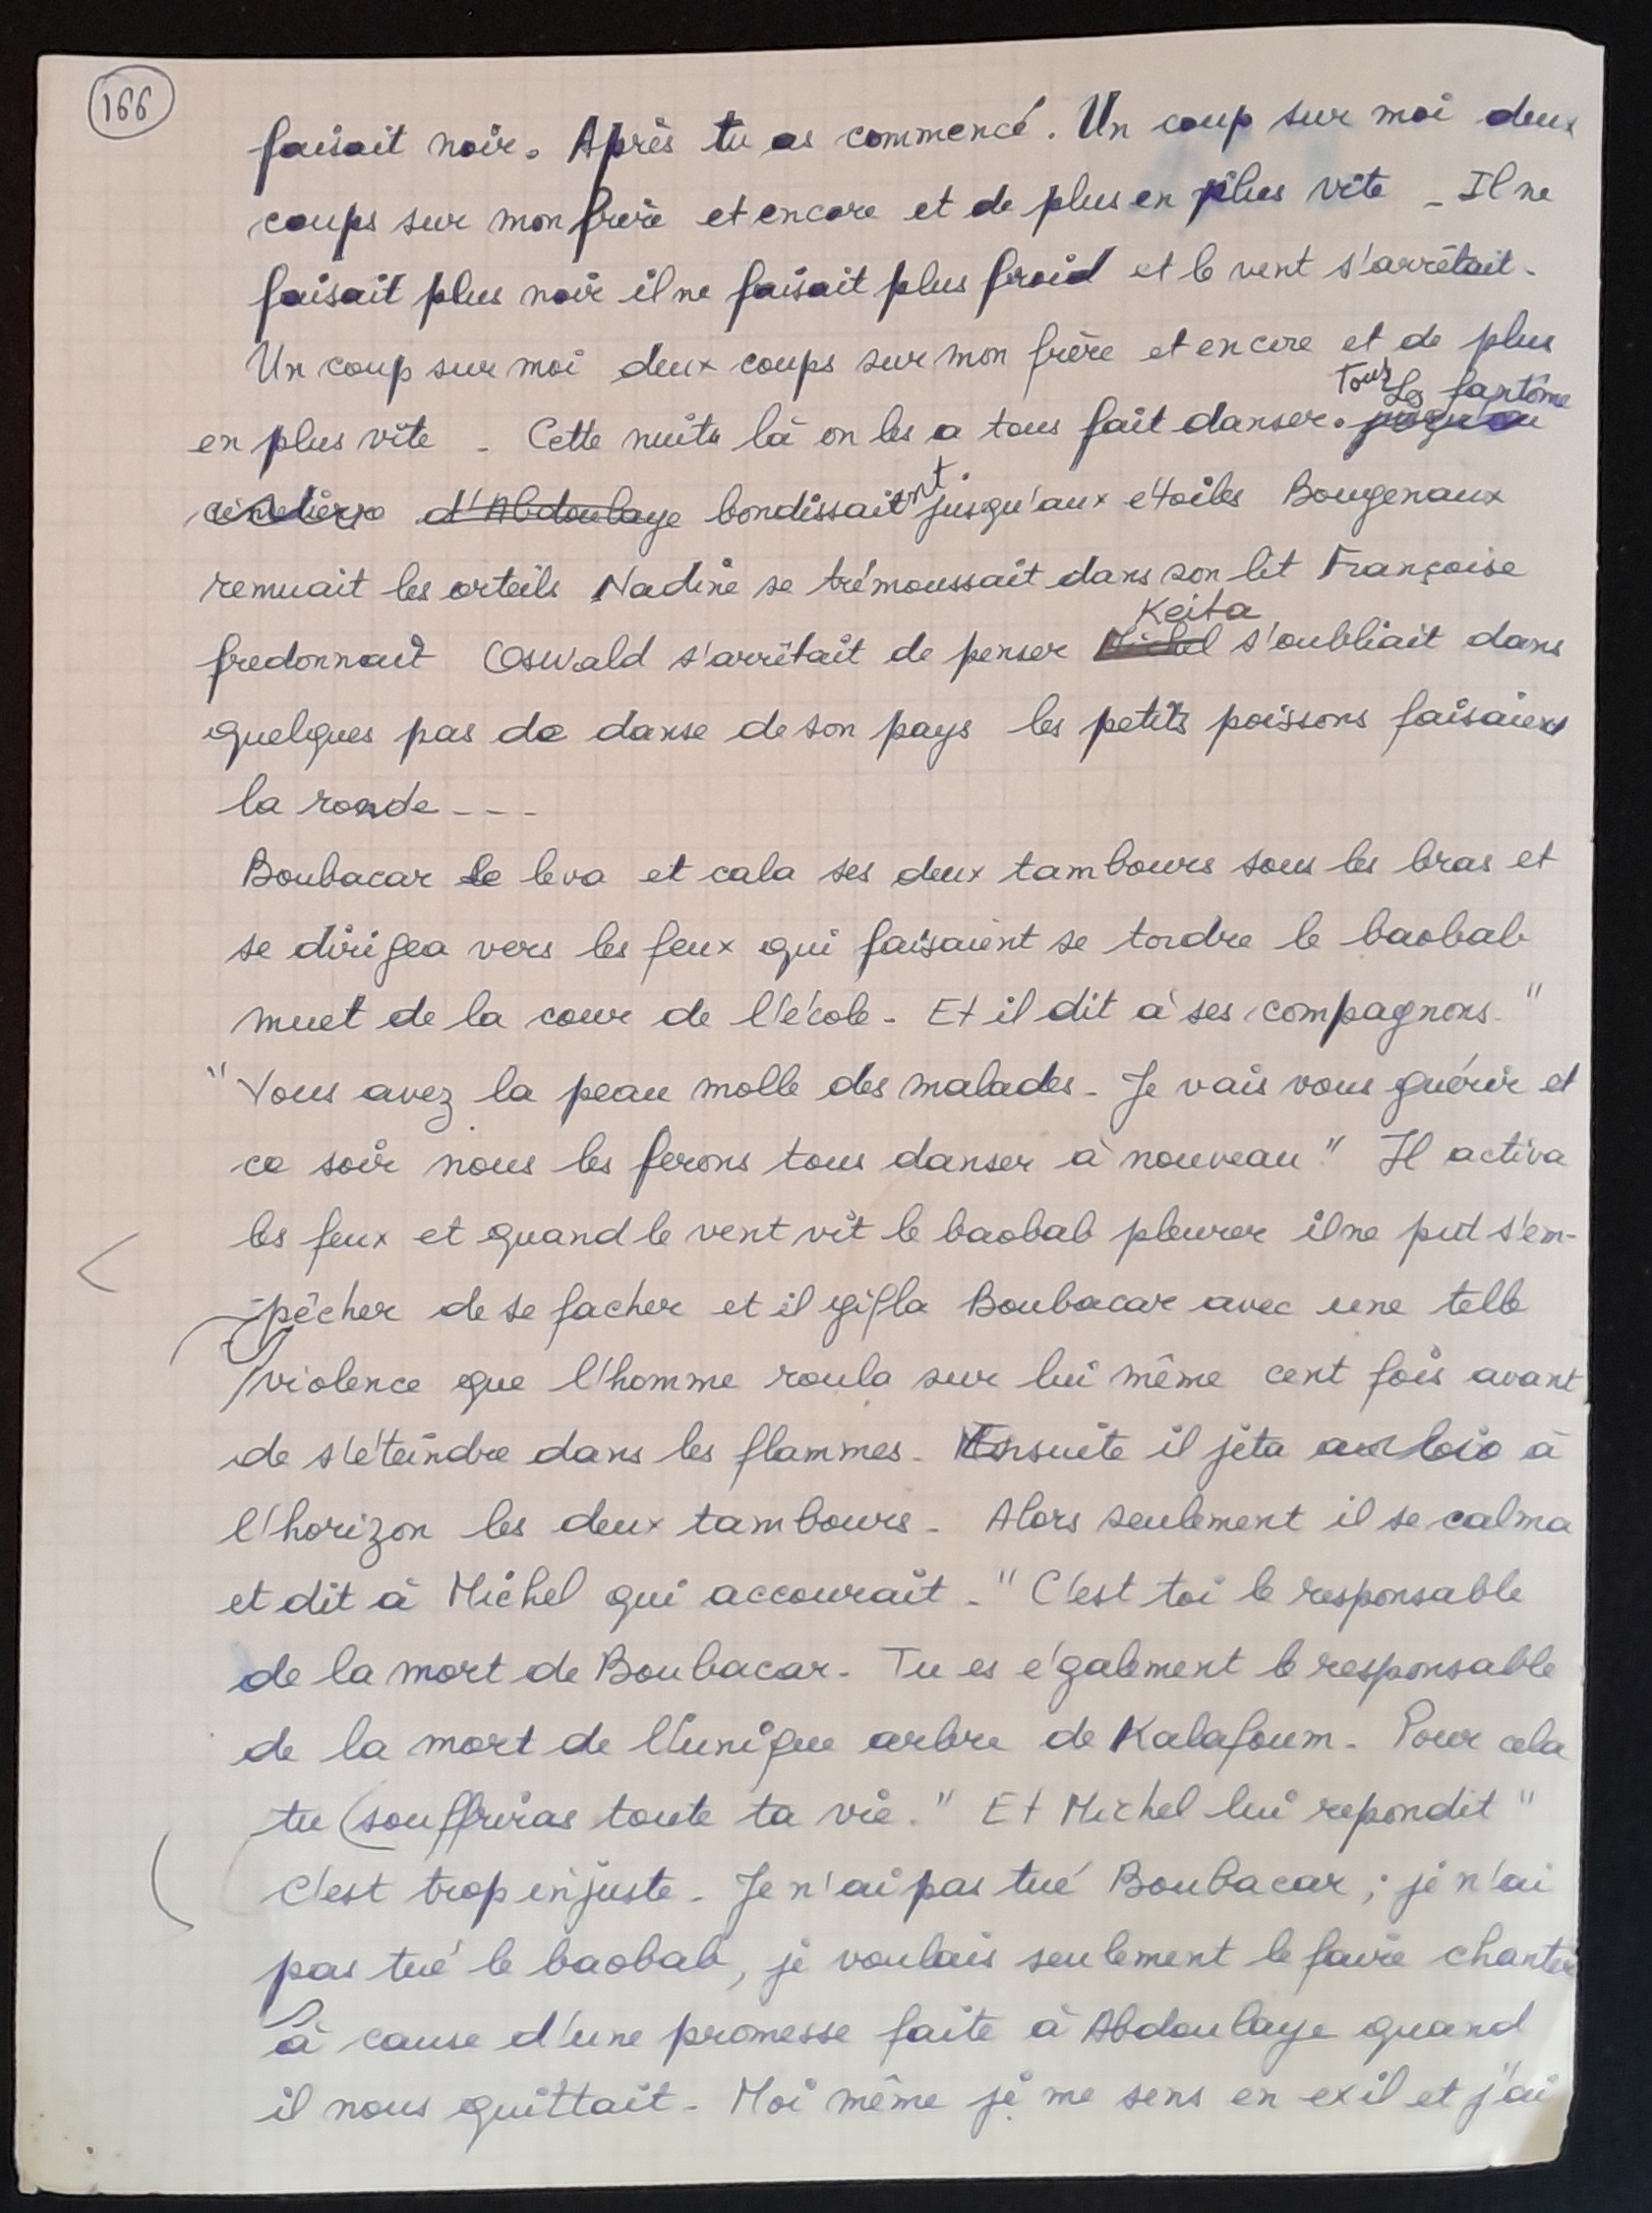 166
faisait noir. Après tu as commencé. Un coup sur moi deux
coups sur mon frère et encore et de plus en plus vite _ Il ne
faisait plus noir il ne faisait plus froid et le vent s'arrêtait.
Un coup sur moi deux coups sur mon frère et encore et de plus
Tous les fantôme
en plus vite _ Cette nuit là on les a tous fait danser. jusqu'au
cimetière d'Abdoulaye bondissaient jusqu'aux étoiles Bougenaux
remuait les orteils Nadine se trémoussait dans son lit Françoise
Keita
fredonnait Oswald s'arrêtait de penser Michel s'oubliait dans
quelques pas de danse de son pays les petits poissons faisaient
la ronde _ _ _
Boubacar se leva et cala ses deux tambours sous les bras et
se dirigea vers les feux qui faisaient se tordre le baobab
muet de la cour de l'école _ Et il dit à ses compagnons. "
"Vous avez la peau molle des malades _ Je vais vous guérir et
ce soir nous les ferons tous danser à nouveau" Il activa
les feux et quand le vent vit le baobab pleurer il ne put s'em-
-pêcher de se facher et il gifla Boubacar avec une telle
violence que l'homme roula sur lui même cent fois avant
de s'éteindre dans les flammes _ Ensuite il jeta à
l'horizon les deux tambours _ Alors seulement il se calma
et dit à Michel qui accourait _ "C'est toi le responsable
de la mort de Boubacar _ Tu es également le responsable
de la mort de l'unique arbre de Kalafoum _ Pour cela
tu (souffriras toute ta vie." Et Michel lui repondit "
C'est trop injuste _ Je n'ai pas tué Boubacar ; je n'ai
pas tué le baobab, je voulais seulement le faire chanter
à cause d'une promesse faite à Abdoulaye quand
il nous quittait _ Moi même je me sens en exil et j'ai